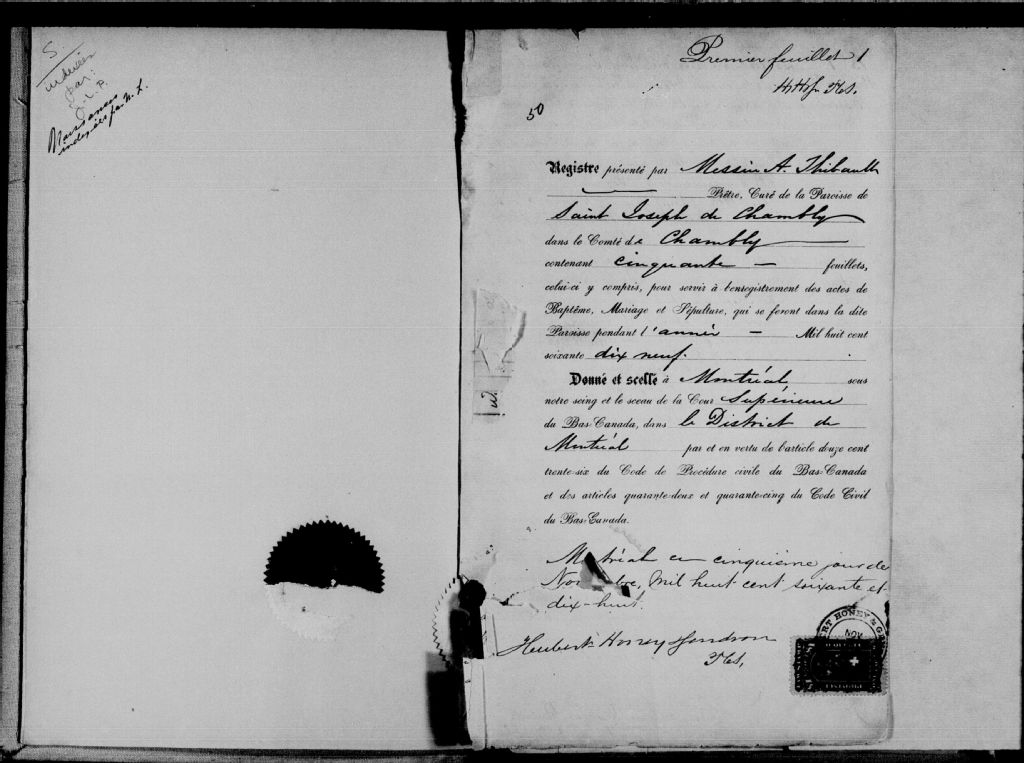 S.
indexées
par:
Naissances
indexées par M. L.
Premier feuillet 1
HH&G. Pcs.
50
Registre présenté par Messire A. Thibault
Prêtre, Curé de la Paroisse de
Saint Joseph de Chambly
dans le Comté de Chambly
contenant cinquante feuillets,
celui-ci y compris, pour servir à l'enregistrement des actes de
Baptême, Mariage et Sépulture, qui se feront dans la dite
Paroisse pendant l'année Mil huit cent
soixante dix neuf.
Donné et scellé à Montréal, sous
notre seing et le sceau de la Cour Supérieure
du Bas-Canada, dans le District de
Montréal par et en vertu de l'article douze cent
trente-six du Code de Procédure civile du Bas-Canada
et des articles quarante-deux et quarante-cinq du Code Civil
du Bas-Canada.
Montréal ce cinquième jour de
Novembre, Mil huit cent soixante et
dix-huit.
Hubert Honey Gendron
Pcs.
RT HONEY & GE
NOV